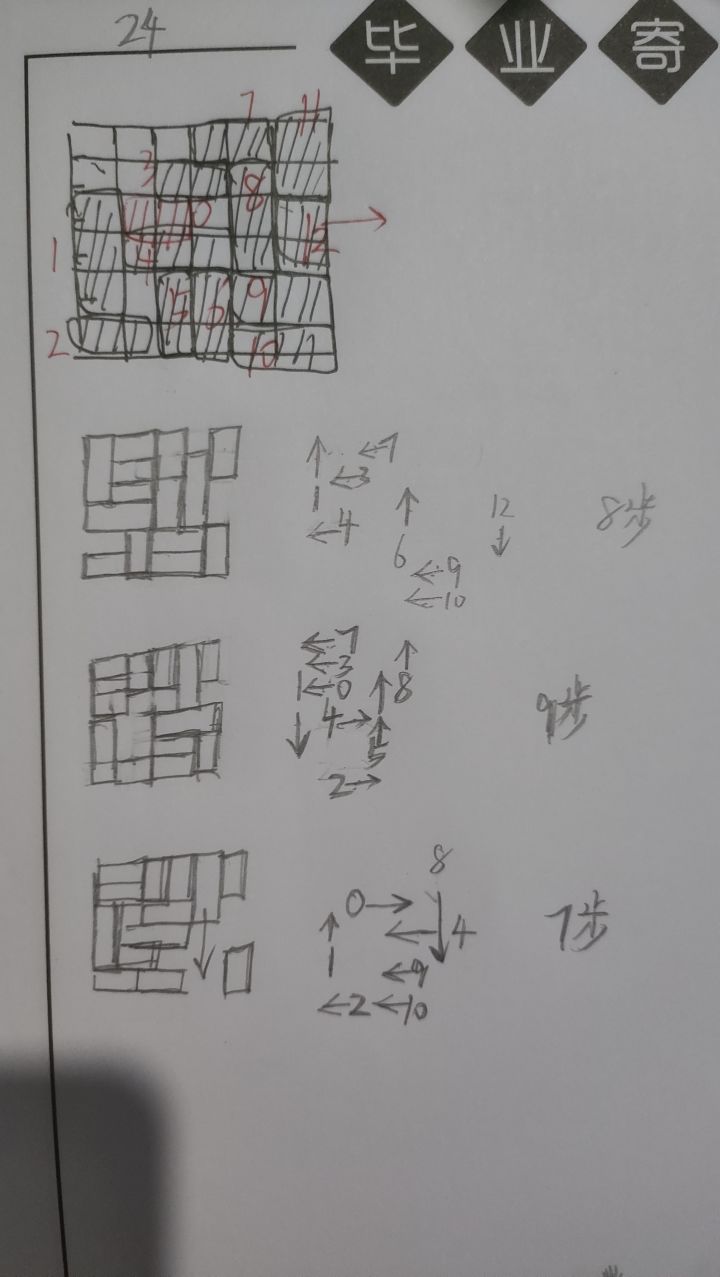 24
毕业寄
7 11
3
8
0
12
1
4
5 6 9
2
10
↑ ←7
←3
1
←4
↑
6
←9
←10
12
↓
8步
←7
←3
1←0
↑
↑8
↓
4→
↑
5
2→
9步
8
0→
↑
←
↓4
1
←9
←2←10
7步